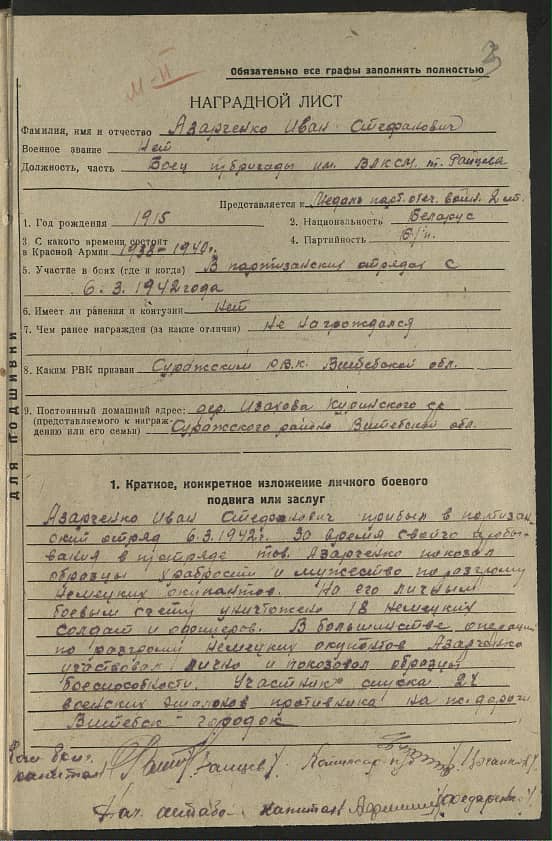 3
М-II
Обязательно все графы заполнять полностью
НАГРАДНОЙ ЛИСТ
Фамилия, имя и отчество Азарченко Иван Стефанович
Военное звание Нет
Должность, часть Боец п/бригады им. ВЛКСМ. т. Райцева
Представляется к Медаль парт. отеч. войн. 2 ст.
1. Год рождения 1915 2. Национальность Белакус
3. С какого времени состоит в Красной Армии 1938-1940г. 4. Партийность Б/п.
5. Участие в боях (где и когда) В партизанских отрядах с
6.3.1942 года
6. Имеет ли ранения и контузии Нет
7. Чем ранее награжден (за какие отличия) Не награждался
8. Каким РВК призван Суражским РВК. Витебской обл.
9. Постоянный домашний адрес: дер. Изахова с/с
(представляемого к награждению или его семьи) Суражского района Витебской обл.
ДЛЯ ПОДШИВКИ
1. Краткое, конкретное изложение личного боевого
подвига или заслуг
Азарченко Иван Стефанович прибыл в партизан-
ский отряд 6.3.1942г. За время своего пребы-
вания в п/отряде тов. Азарченко показал
образцы храбрости и мужество по разгрому
немецких окупантов. На его личным
боевым счету уничтожено 18 немецких
солдат и офицеров. В большинстве операций
по разгрому немецких окупантов Азарченко
участвовал лично и показовал образцы
боеспособности. Участник спуска 2х
воинских эшалонов противника на ж.дороги
Витебск - городок
Ком. бри.
капитан Комиссар п/б
Нач. штаба капитан